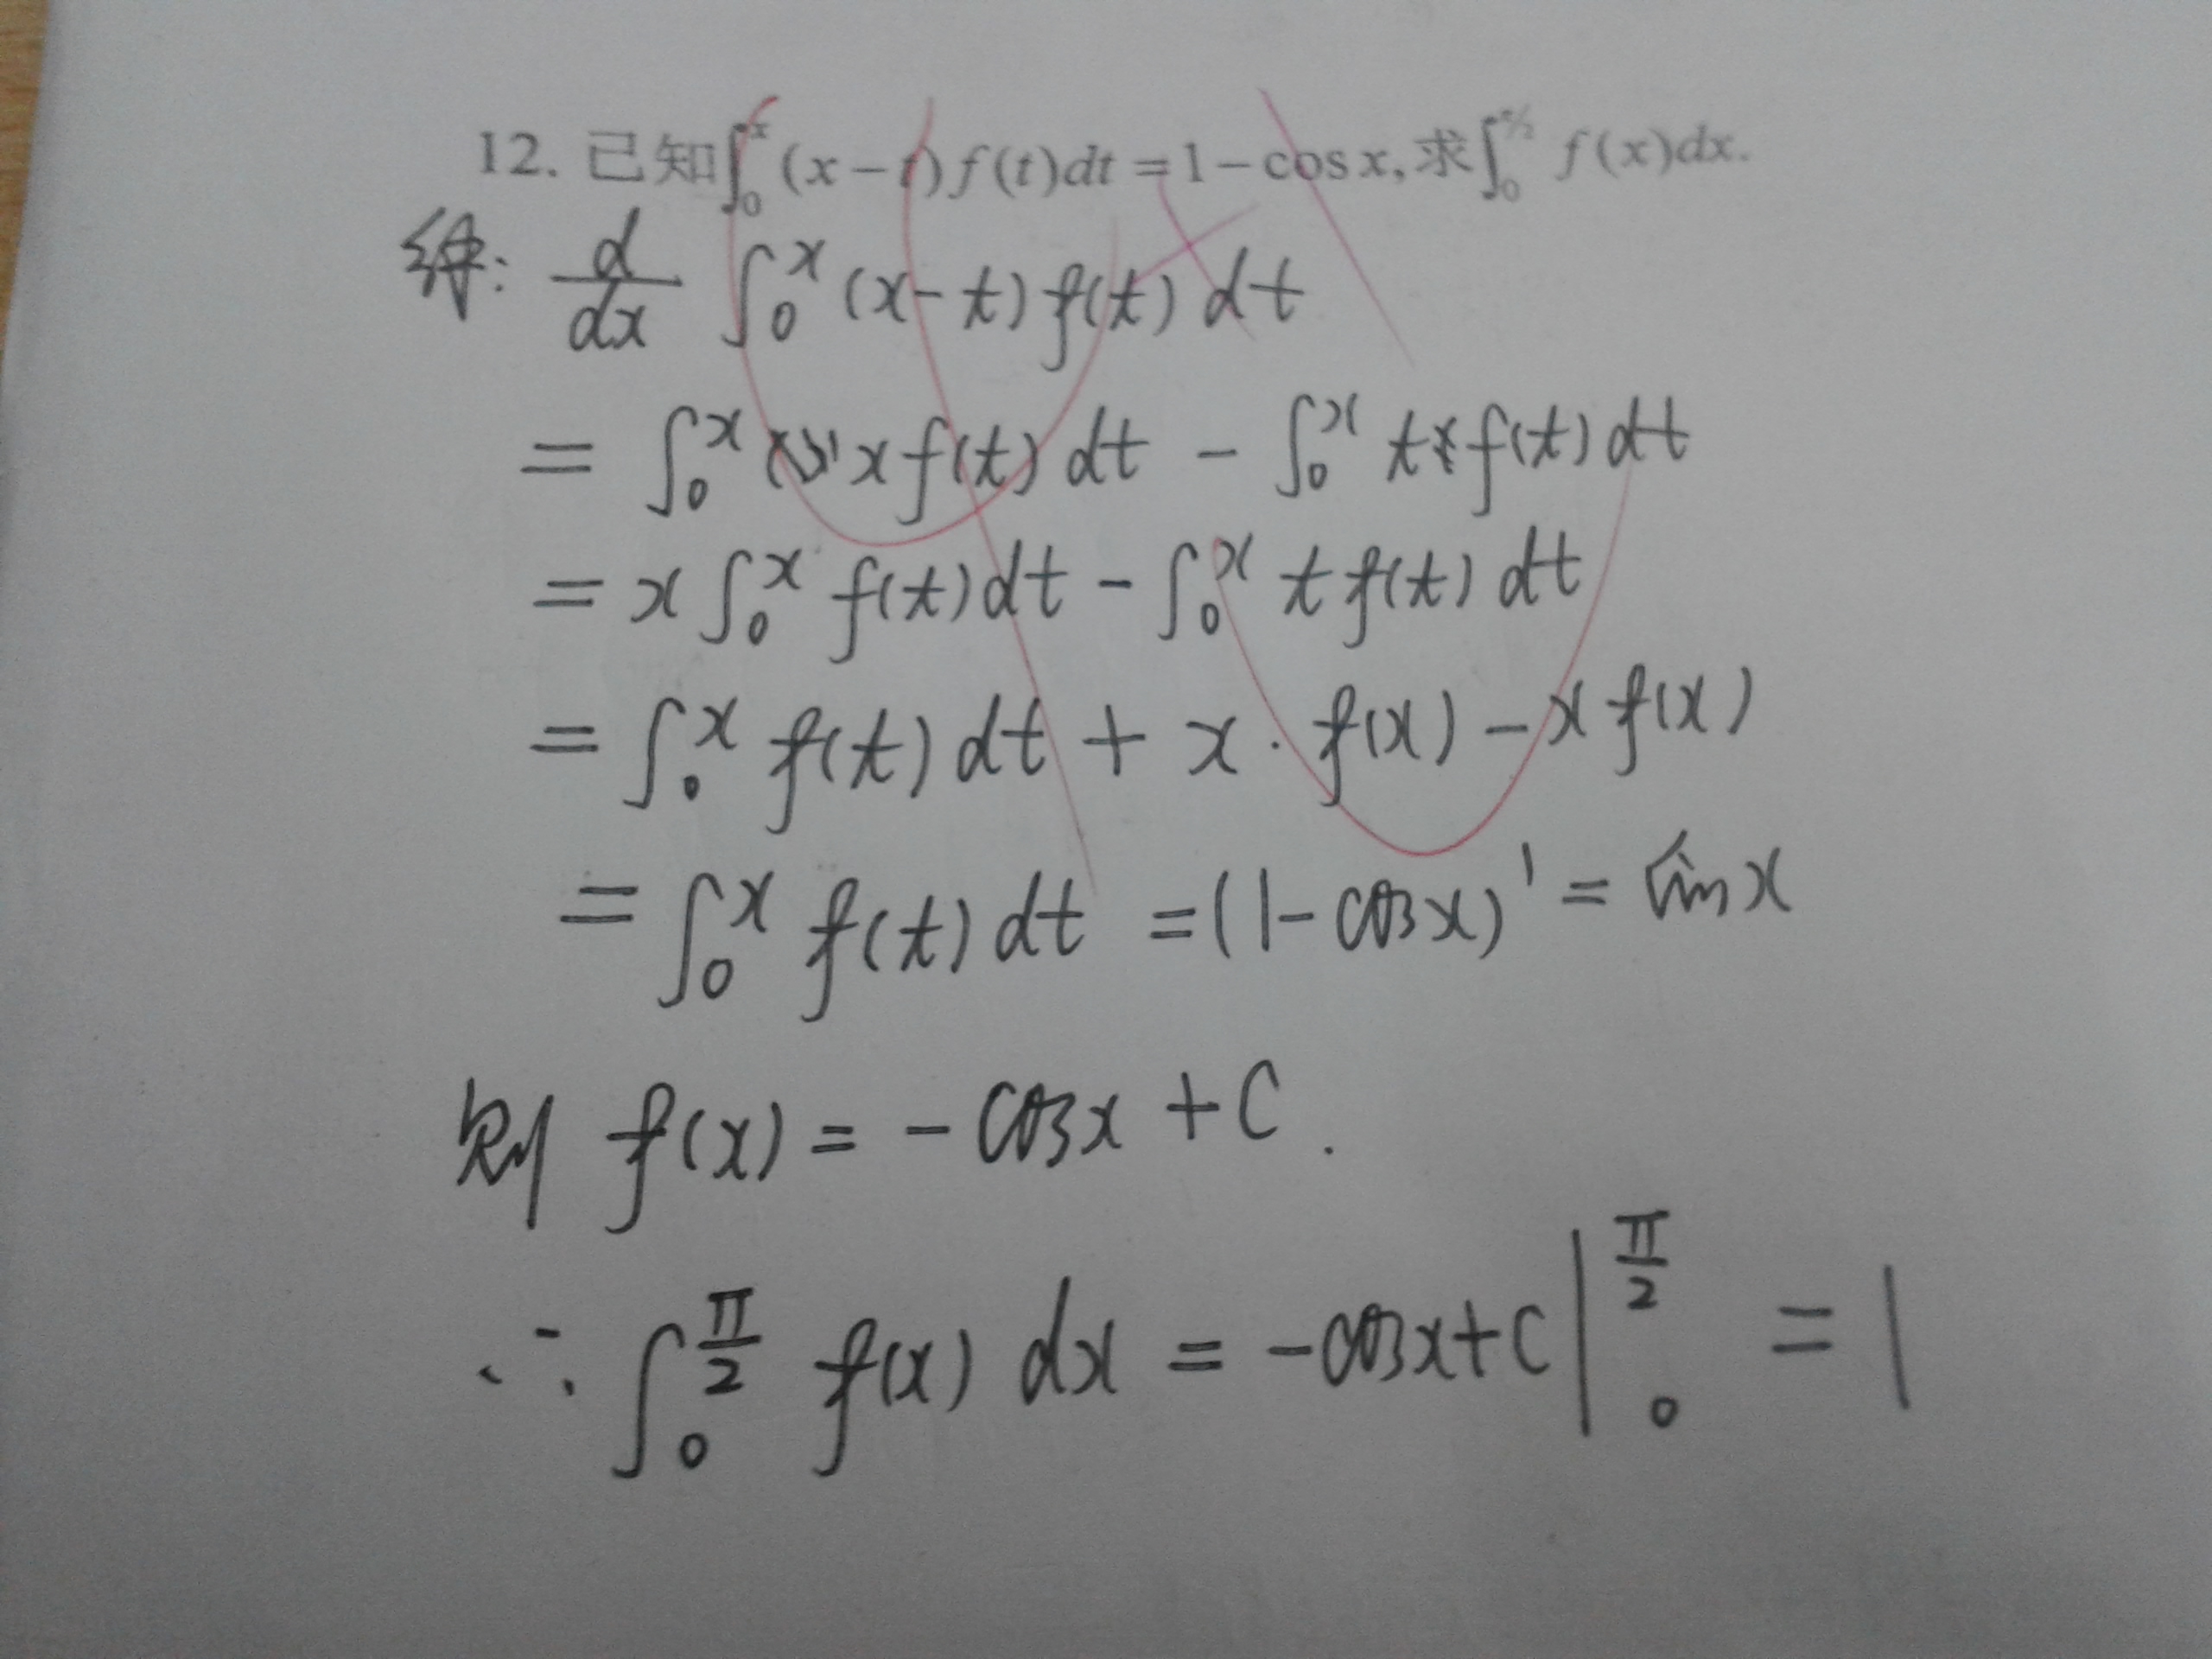 12. 已知∫₀ˣ(x−t)f(t)dt=1−cos x,求∫₀^(π/2) f(x)dx.
解: d/dx ∫₀ˣ (x-t) f(t) dt
= ∫₀ˣ x f(t) dt - ∫₀ˣ t f(t) dt
= x ∫₀ˣ f(t) dt - ∫₀ˣ t f(t) dt
= ∫₀ˣ f(t) dt + x · f(x) - x f(x)
= ∫₀ˣ f(t) dt = (1-cosx)' = sinx
则 f(x) = -cosx + C .
∴ ∫₀^(π/2) f(x) dx = -cosx+C |₀^(π/2) = 1